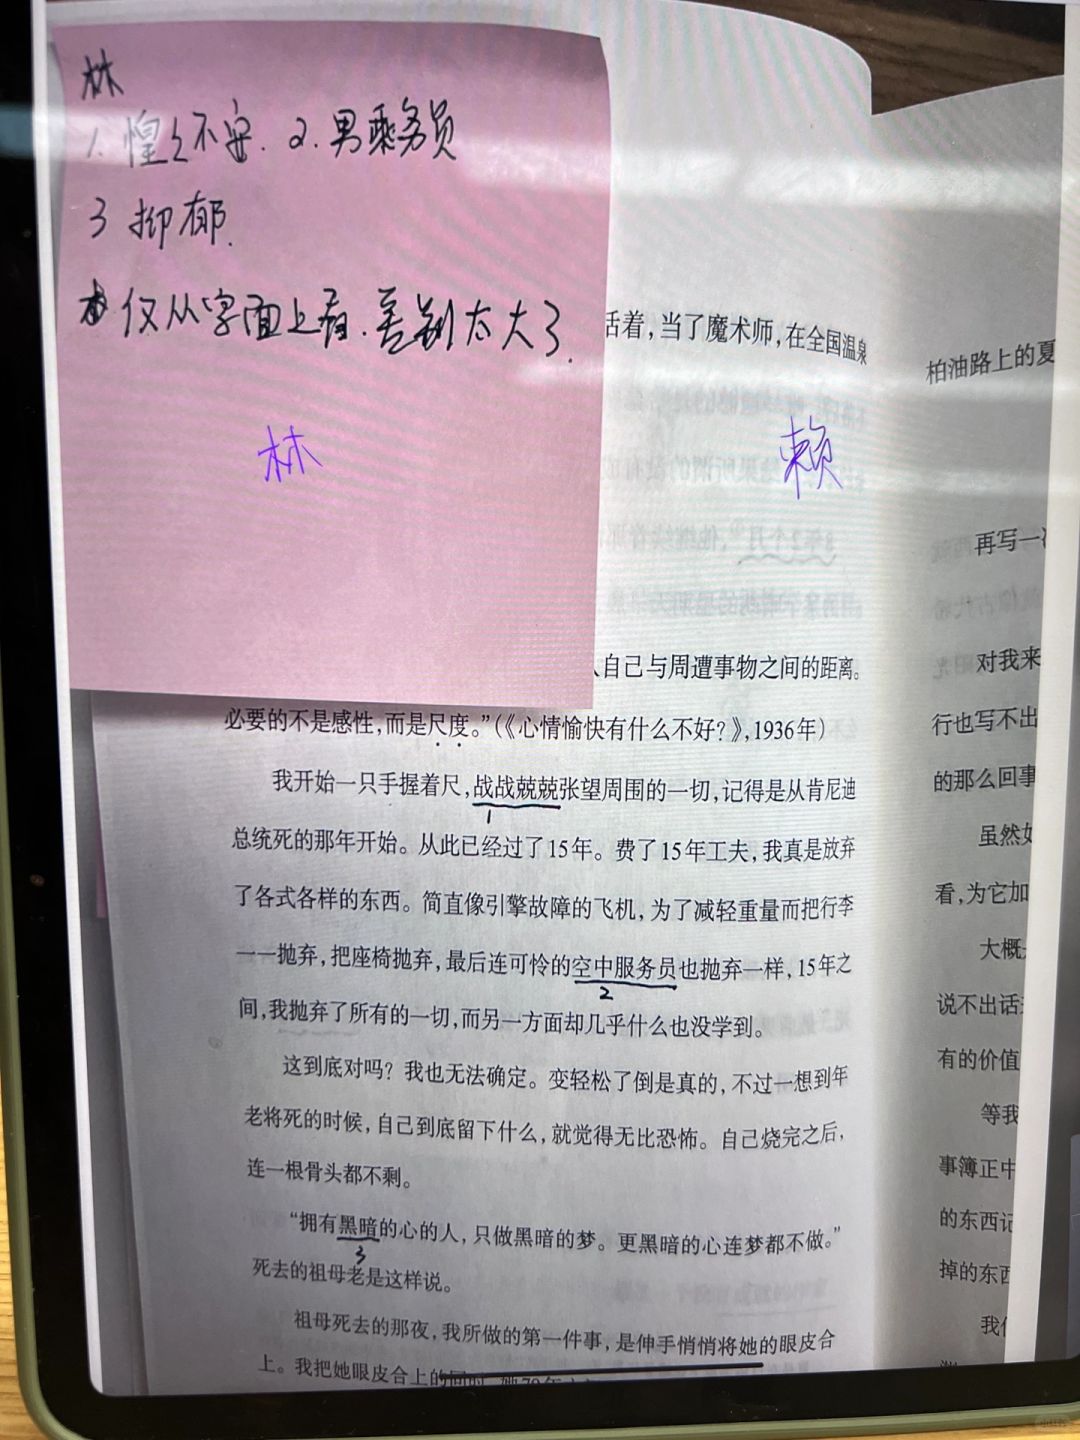 林
1. 惶々不安. 2. 男乘务员
3 抑郁.
仅从字面上看.差别太大了.
林
赖
活着，当了魔术师，在全国温泉
自己与周遭事物之间的距离。
必要的不是感性，而是尺度。”（《心情愉快有什么不好？》，1936年）
我开始一只手握着尺，战战兢兢张望周围的一切，记得是从肯尼迪
1
总统死的那年开始。从此已经过了15年。费了15年工夫，我真是放弃
了各式各样的东西。简直像引擎故障的飞机，为了减轻重量而把行李
一一抛弃，把座椅抛弃，最后连可怜的空中服务员也抛弃一样，15年之
2
间，我抛弃了所有的一切，而另一方面却几乎什么也没学到。
这到底对吗？我也无法确定。变轻松了倒是真的，不过一想到年
老将死的时候，自己到底留下什么，就觉得无比恐怖。自己烧完之后，
连一根骨头都不剩。
“拥有黑暗的心的人，只做黑暗的梦。更黑暗的心连梦都不做。”
3
死去的祖母老是这样说。
祖母死去的那夜，我所做的第一件事，是伸手悄悄将她的眼皮合
上。我把她眼皮合上的同时，她79年
柏油路上的夏
再写一次
对我来
行也写不出
的那么回事
虽然如
看，为它加
大概
说不出话
有的价值
等我
事簿正中
的东西记
掉的东西
我们